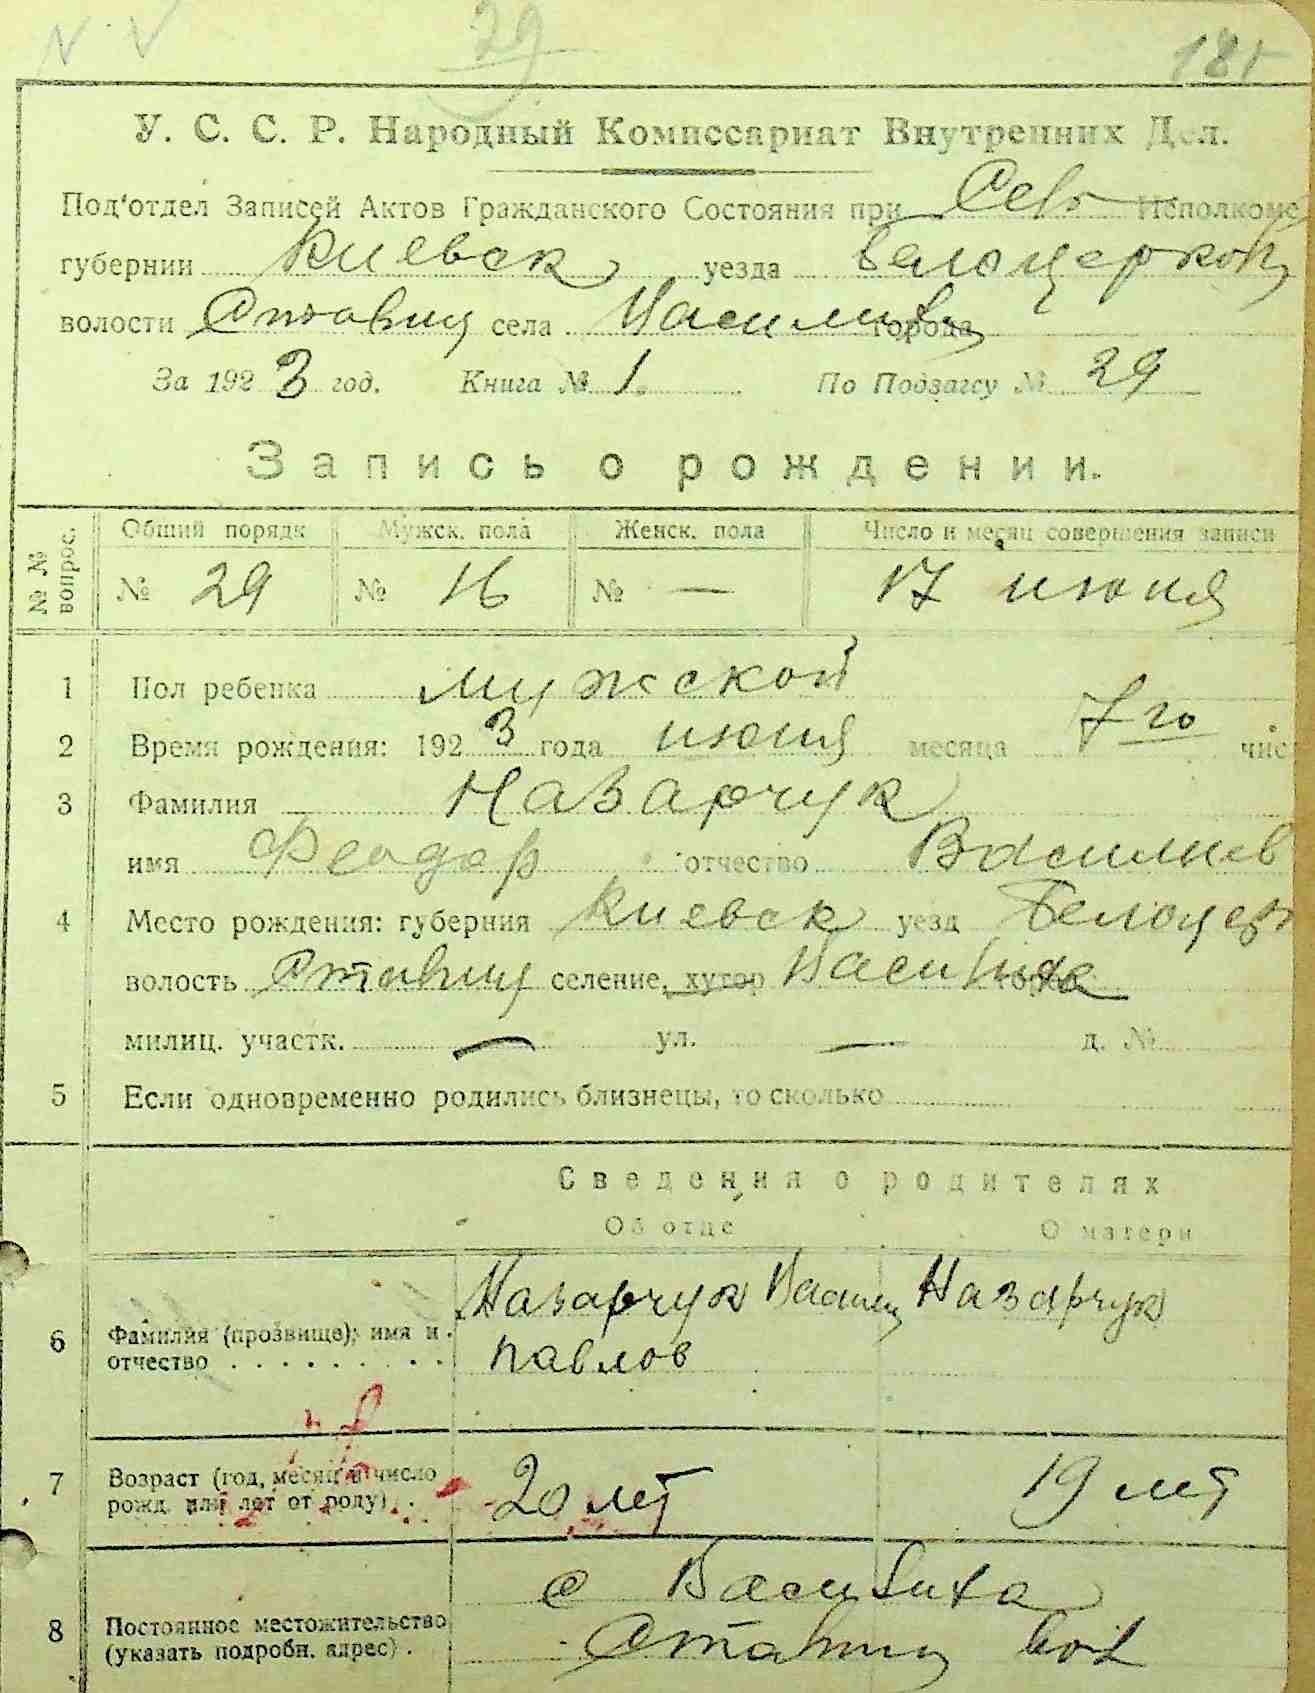 29
У. С. С. Р. Народный Комиссариат Внутренних Дел.
Под'отдел Записей Актов Гражданского Состояния при Сель Исполкоме
губернии Киевск уезда Белоцерков
волости Ставищ села города
За 1923 год. Книга № 1. По Подзагсу № 29
Запись о рождении.
№ № вопрос. Общий порядк Мужск. пола Женск. пола Число и месяц совершения записи
№ 29 № 16 № — 17 июня
1 Пол ребенка мужской
2 Время рождения: 1923 года июня месяца 7го чис
3 Фамилия Назарчук
имя Феодор отчество Василиев
4 Место рождения: губерния Киевск уезд Белоцер
волость Ставищ селение, хутор Василиха
милиц. участк. — ул. — д. №
5 Если одновременно родились близнецы, то сколько
Сведения о родителях
Об отце О матери
6 Фамилия (прозвище), имя и отчество Назарчук Василий Павлов Назарчук
7 Возраст (год, месяц и число рожд. или лет от роду) 20 лет 19 лет
8 Постоянное местожительство (указать подробн. адрес) с Василиха
Ставищ вол